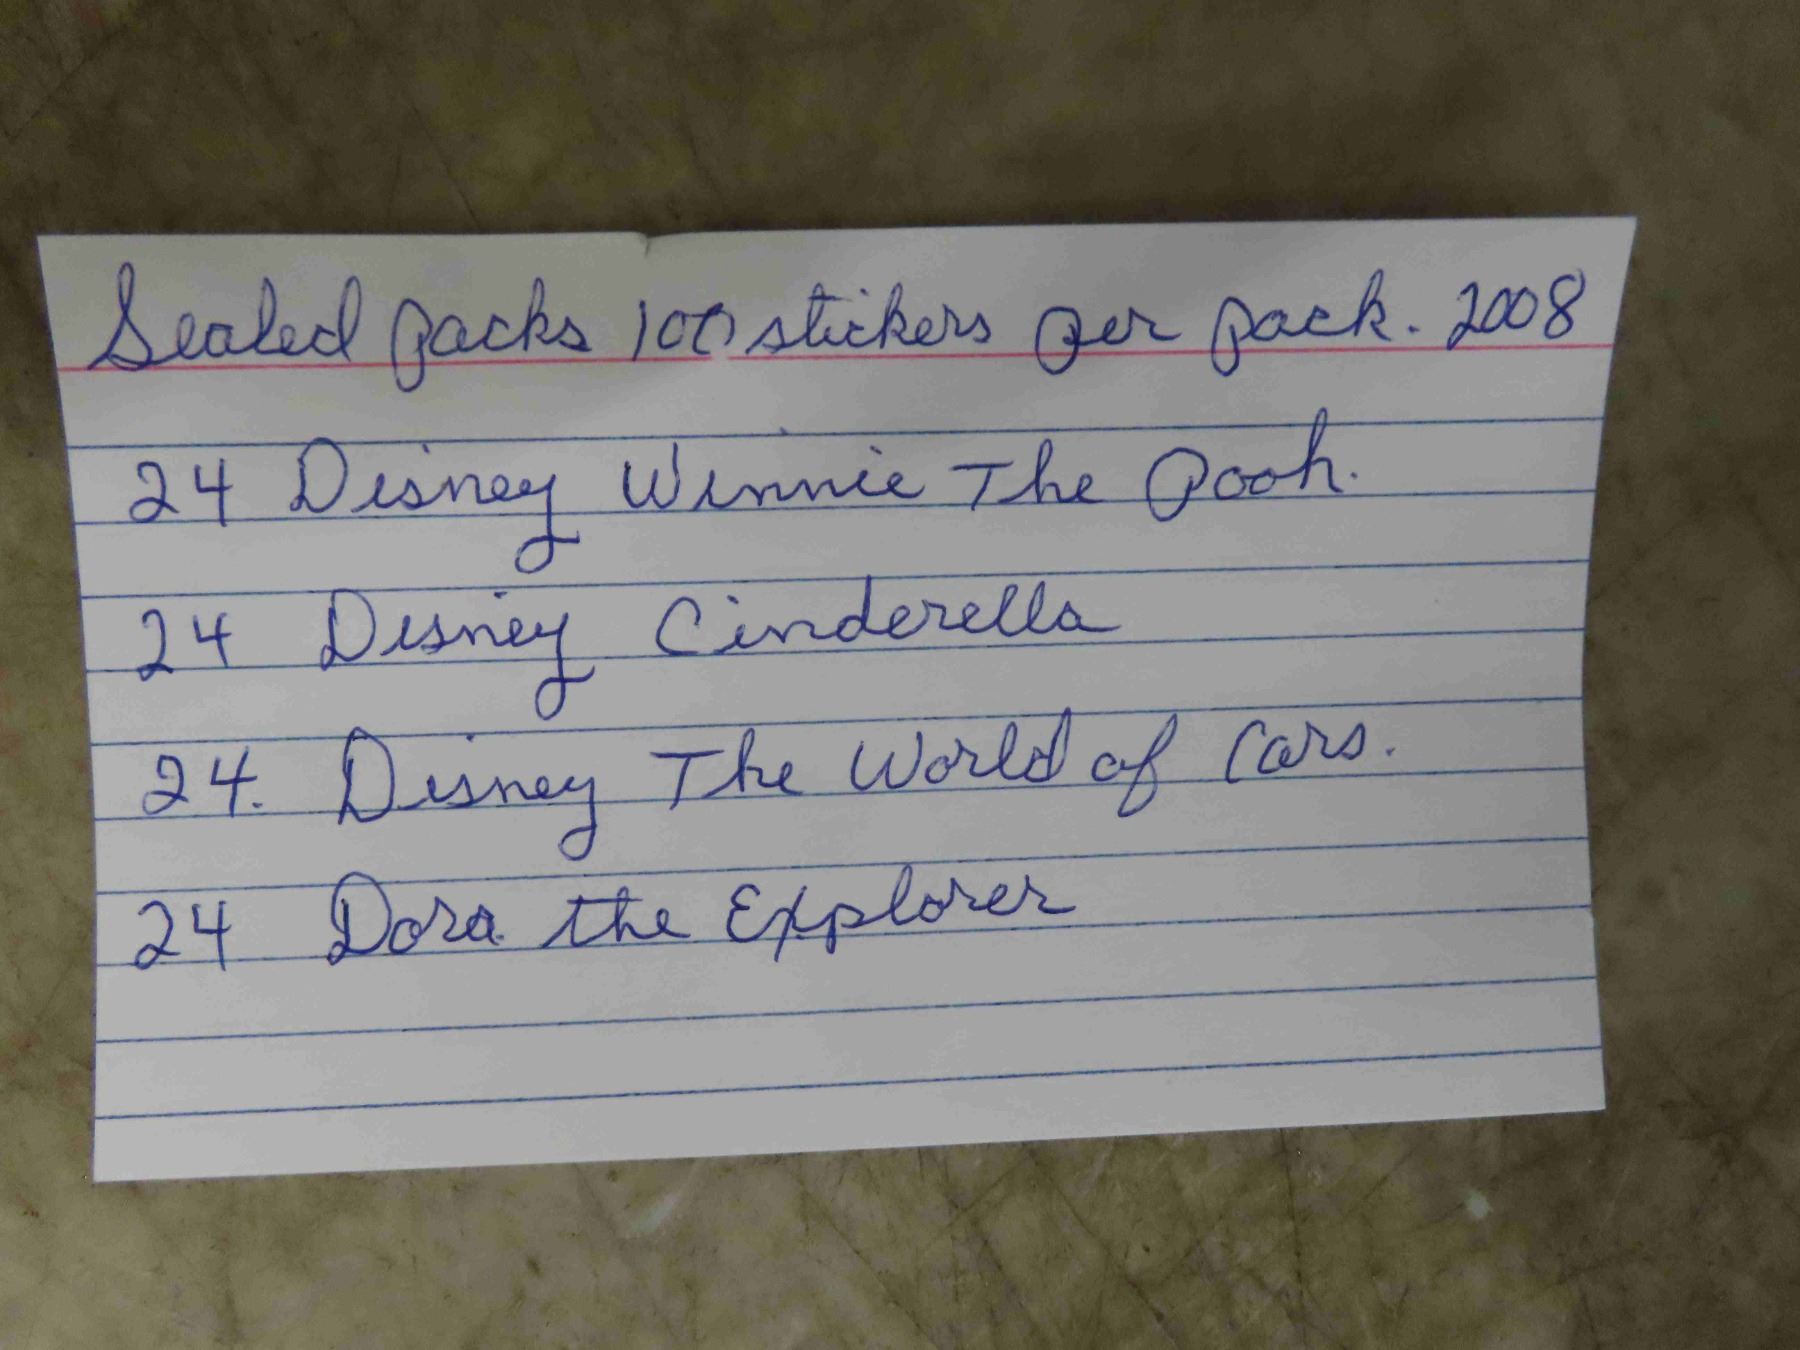 Sealed packs 100 stickers per pack. 2008
24 Disney Winnie The Pooh.
24 Disney Cinderella
24. Disney The World of Cars.
24 Dora the Explorer